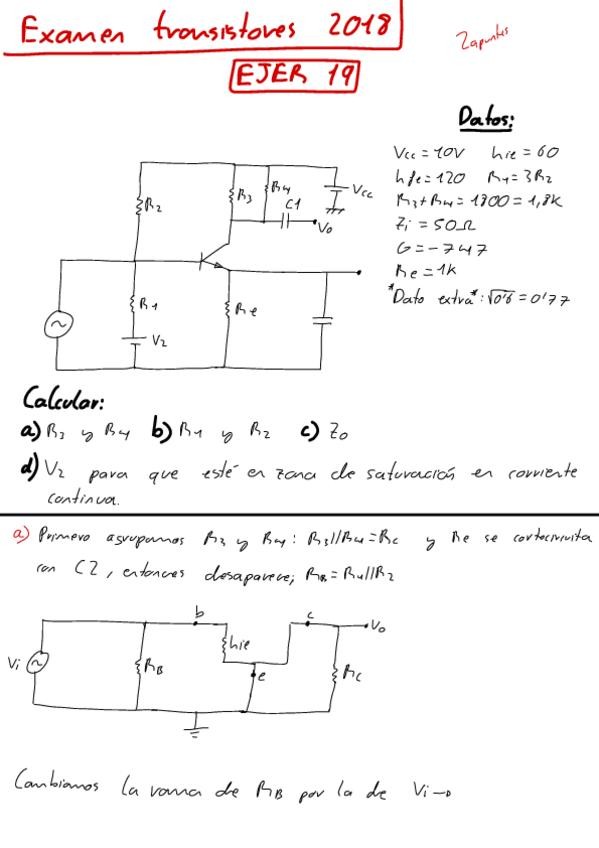 Examen transistores 2018
2apuntes
EJER 19
Datos:
Vcc = 10V hie = 60
hfe = 120 R1 = 3R2
R3 + R4 = 1800 = 1,8K
Zi = 50Ω
G = -747
Re = 1k
*Dato extra*: √0'6 = 0'77
R2
R3
R4
C1
Vcc
Vo
R1
V2
Re
Calcular:
a) R3 y R4 b) R1 y R2 c) Zo
d) V2 para que esté en zona de saturación en corriente
continua.
a) Primero agrupamos R3 y R4: R3//R4 = Rc y Re se cortocircuita
con C2, entonces desaparece; RB = R1//R2
b
c
Vo
hie
Vi
RB
e
Rc
Cambiamos la rama de RB por la de Vi →